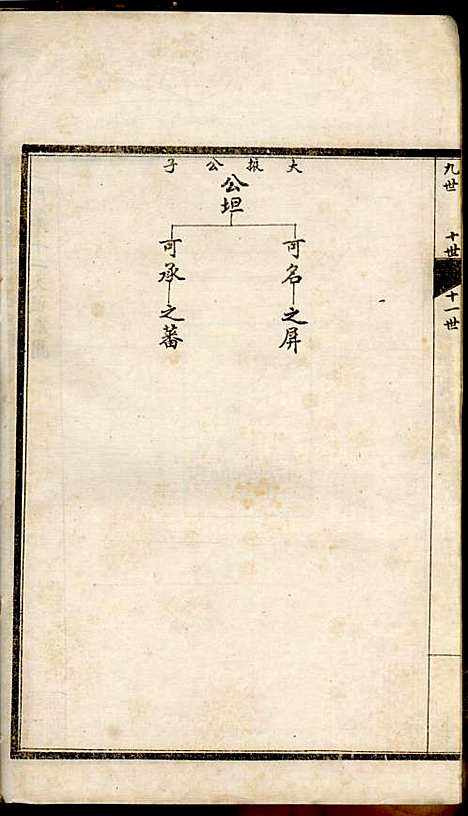 九世
十世
十一世
大振公子
公坦
可名
之屏
可承
之蕃